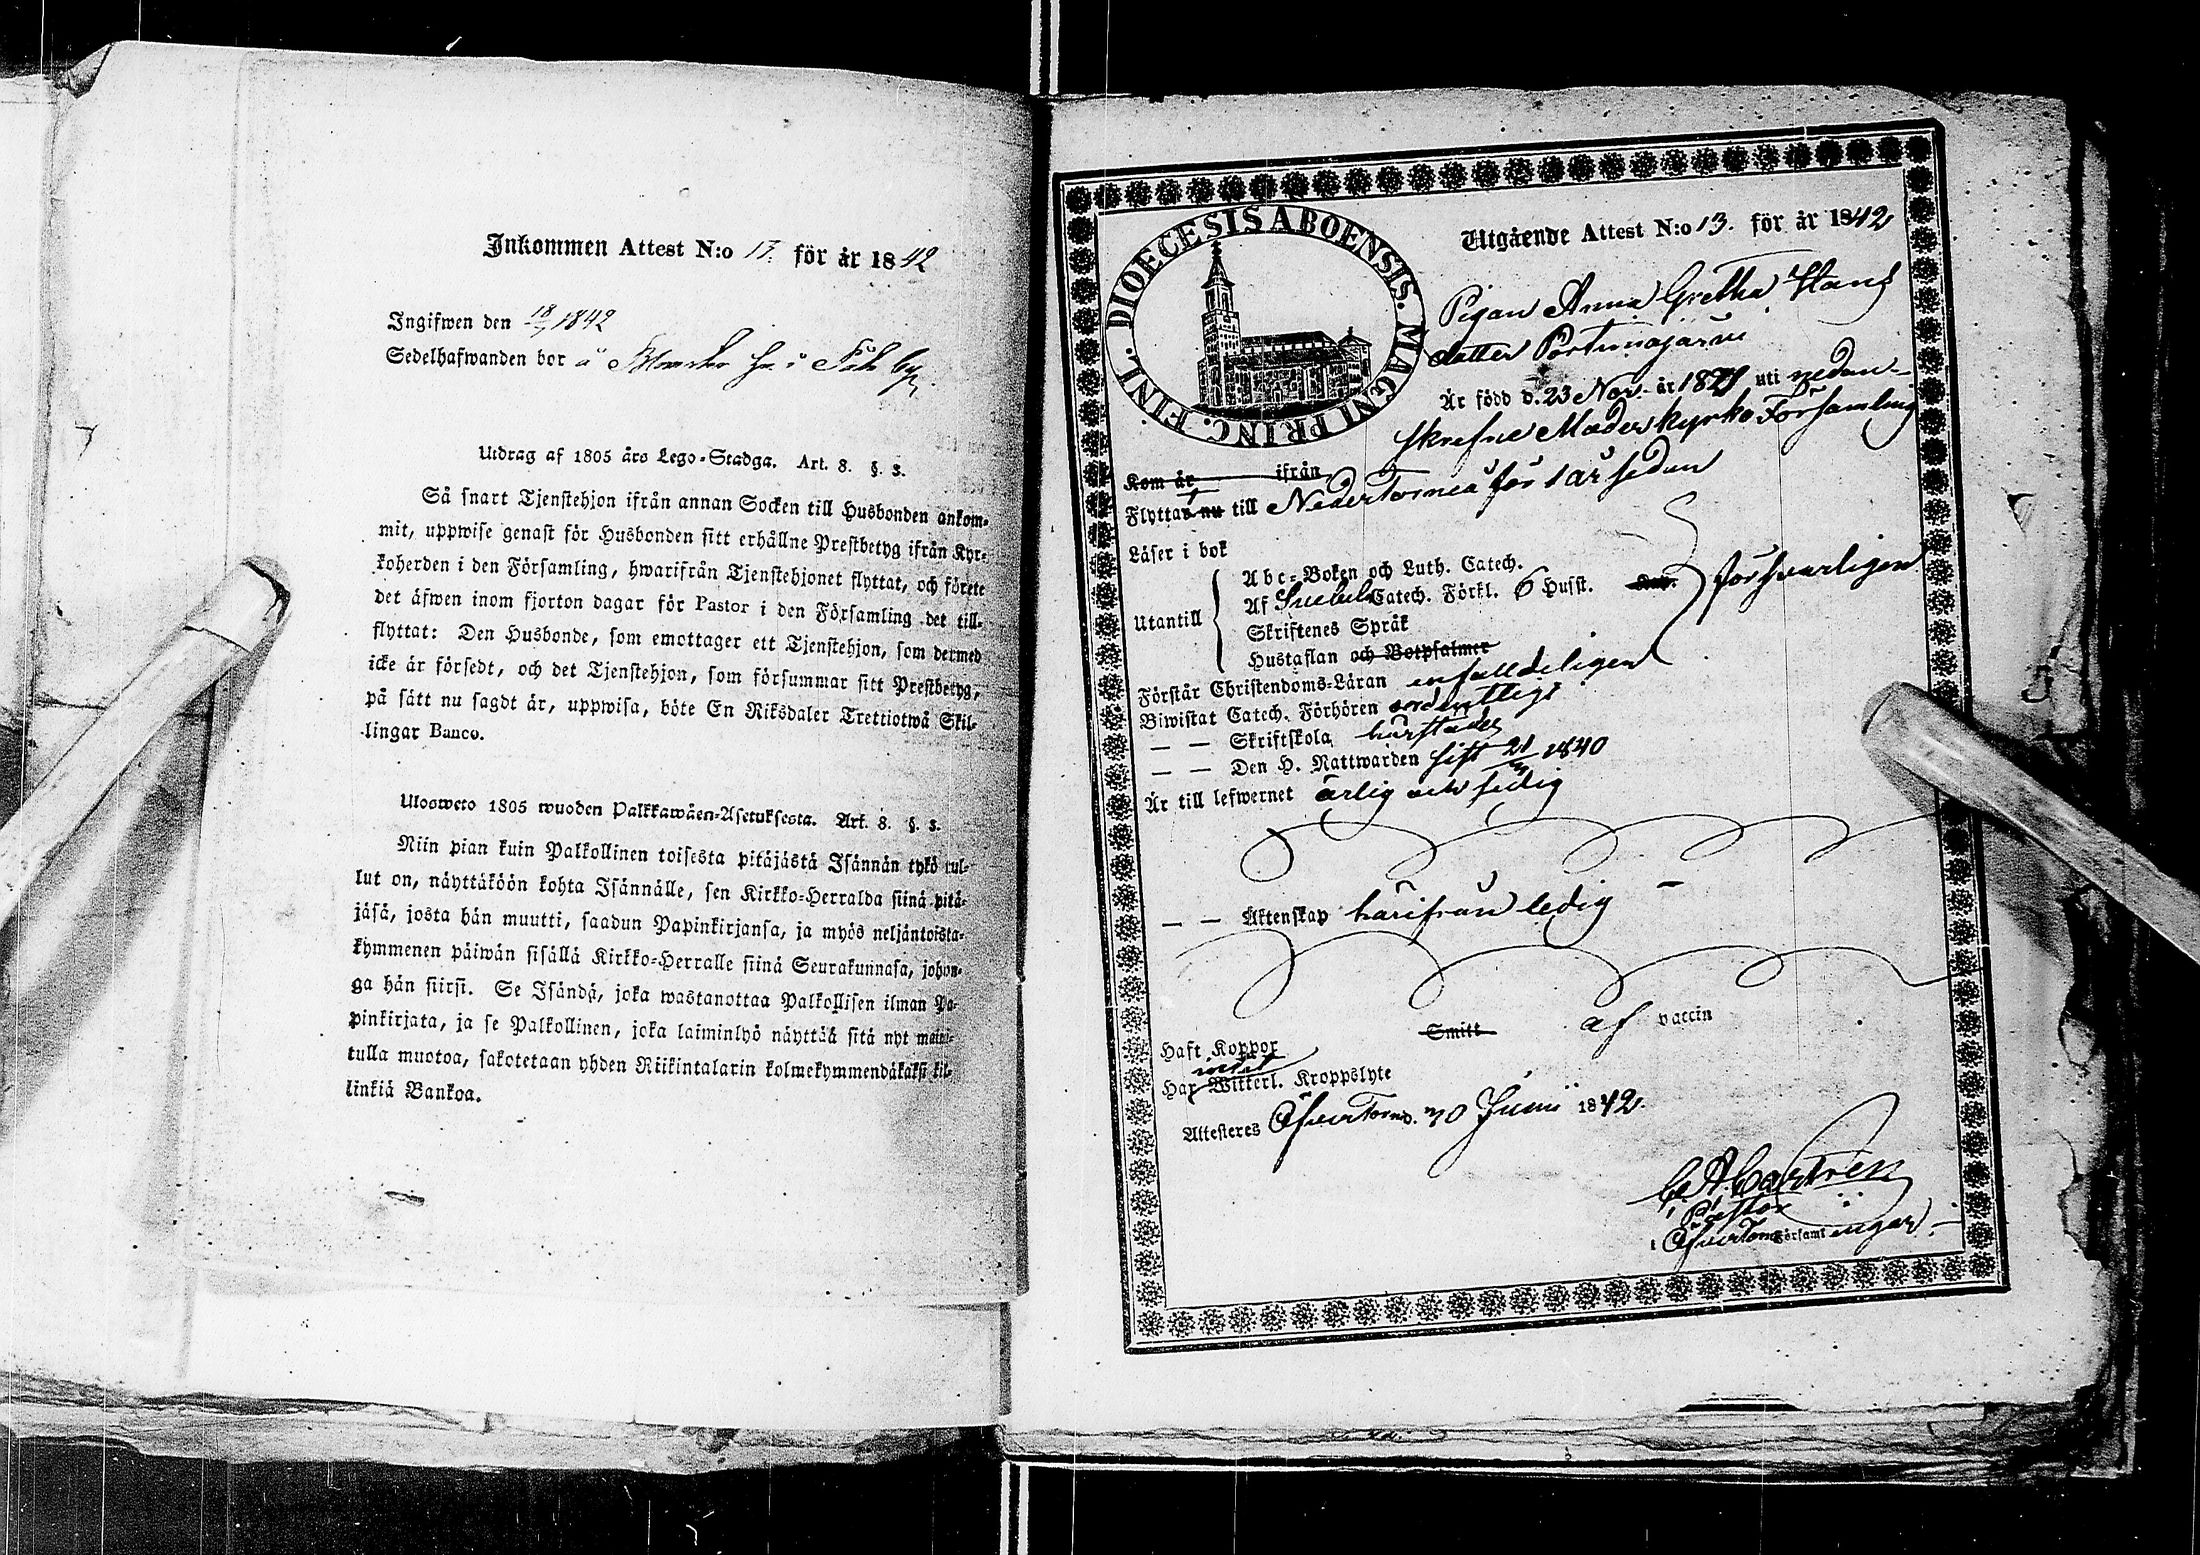 Inkommen Attest N:o 13. för år 1842
Ingifwen den 18/7 1842
Sedelhafwanden bor å i by.
Utdrag af 1805 års Lego-Stadga. Art. 8. §. 3.
Så snart Tjenstehjon ifrån annan Socken till Husbonden ankom-
mit, uppwise genast för Husbonden sitt erhållne Prestbetyg ifrån Kyr-
koherden i den Församling, hwarifrån Tjenstehjonet flyttat, och förete
det äfwen inom fjorton dagar för Pastor i den Församling det till-
flyttat: Den Husbonde, som emottager ett Tjenstehjon, som dermed
icke är försedt, och det Tjenstehjon, som försummar sitt Prestbetyg,
på sätt nu sagdt är, uppwisa, böte En Riksdaler Trettiotwå Skil-
lingar Banco.
Ulosweto 1805 wuoden Palkkawäen-Asetuksesta. Art. 8. §. 3.
Niin pian kuin Palkollinen toisesta pitäjästä Isännän tykö tul-
lut on, näyttäköön kohta Isännälle, sen Kirkko-Herralda siinä pitä-
jäsä, josta hän muutti, saadun Papinkirjansa, ja myös neljäntoista-
kymmenen päiwän sisällä Kirkko-Herralle siinä Seurakunnasa, johon-
ga hän siirsi. Se Isändä, joka wastanottaa Palkollisen ilman Pa-
pinkirjata, ja se Palkollinen, joka laiminlyö näyttää sitä nyt maini-
tulla muotoa, sakotetaan yhden Riikintalarin kolmekymmendäkaksi kil-
linkiä Bankoa.
DIOECESIS ABOENSIS. MAGNI PRINC. FINL.
Utgående Attest N:o 13. för år 1842
Pigan Anna Gretha Hans
datter Portimojärvi
Är född d. 23 Nov. år 1821 uti nedan-
skrefne Moderkyrko Församling
Kom år ifrån
Flyttar nu till Nedertorneå för 1 år sedan
Läser i bok
Abc-Boken och Luth. Catech.
Utantill Af Svebeli Catech. Förkl. 6 Husst. försvarligen
Skriftenes Språk
Hustaflan och Botpsalmer
Förstår Christendoms-Läran enfalldeligen
Biwistat Catech. Förhören ordentligt
— — Skriftskola härstädes
— — Den H. Nattwarden sist 21/3 1840
Är till lefwernet ärlig och sedig
— — Äktenskap härifrån ledig —
Haft Koppor Smitt af vaccin
Har Witterl. Kroppslyte intet
Attesteres Öfvertorneå. 30 Junii 1842.
C. A. Castrén
Pastor
i Öfvertorneå Församlingar.